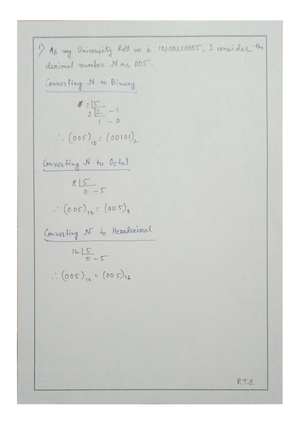 1) As my University Roll no is 10100220005, I consider the
decimal number N as 005.
Converting N to Binary
2 | 5
2 | 2 - 1
1 - 0
∴ (005)₁₀ = (00101)₂
Converting N to Octal
8 | 5
0 - 5
∴ (005)₁₀ = (005)₈
Converting N to Hexadecimal
16 | 5
0 - 5
∴ (005)₁₀ = (005)₁₆
P.T.O.